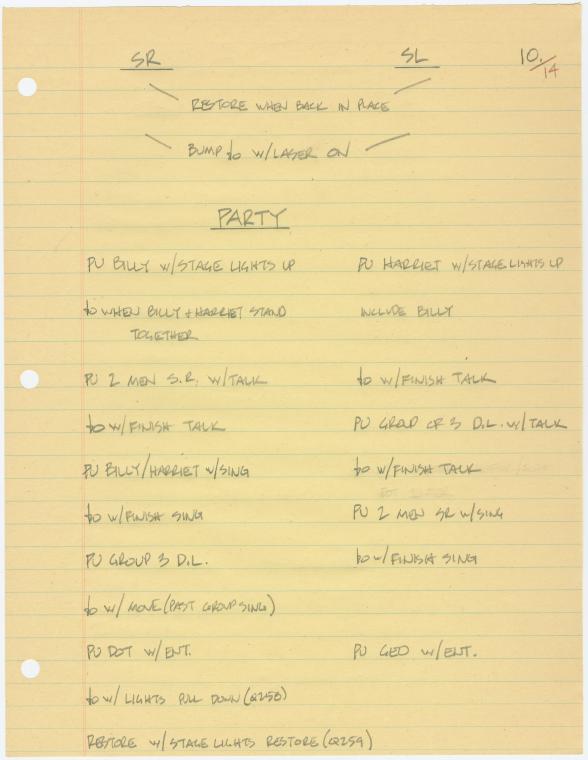 SR SL 10/14
RESTORE WHEN BACK IN PLACE
BUMP fo w/LASER ON
PARTY
PU BILLY w/STAGE LIGHTS UP PU HARRIET w/STAGE LIGHTS UP
fo WHEN BILLY + HARRIET STAND INCLUDE BILLY
TOGETHER
PU 2 MEN S.R. w/TALK fo w/FINISH TALK
fo w/FINISH TALK PU GROUP OF 3 D.L. w/TALK
PU BILLY/HARRIET w/SING fo w/FINISH TALK
fo w/FINISH SING PU 2 MEN SR w/SING
PU GROUP 3 D.L. fo w/FINISH SING
fo w/ MOVE (PAST GROUP SING)
PU DOT w/ENT. PU GEO w/ENT.
fo w/ LIGHTS PULL DOWN (Q258)
RESTORE w/STAGE LIGHTS RESTORE (Q259)